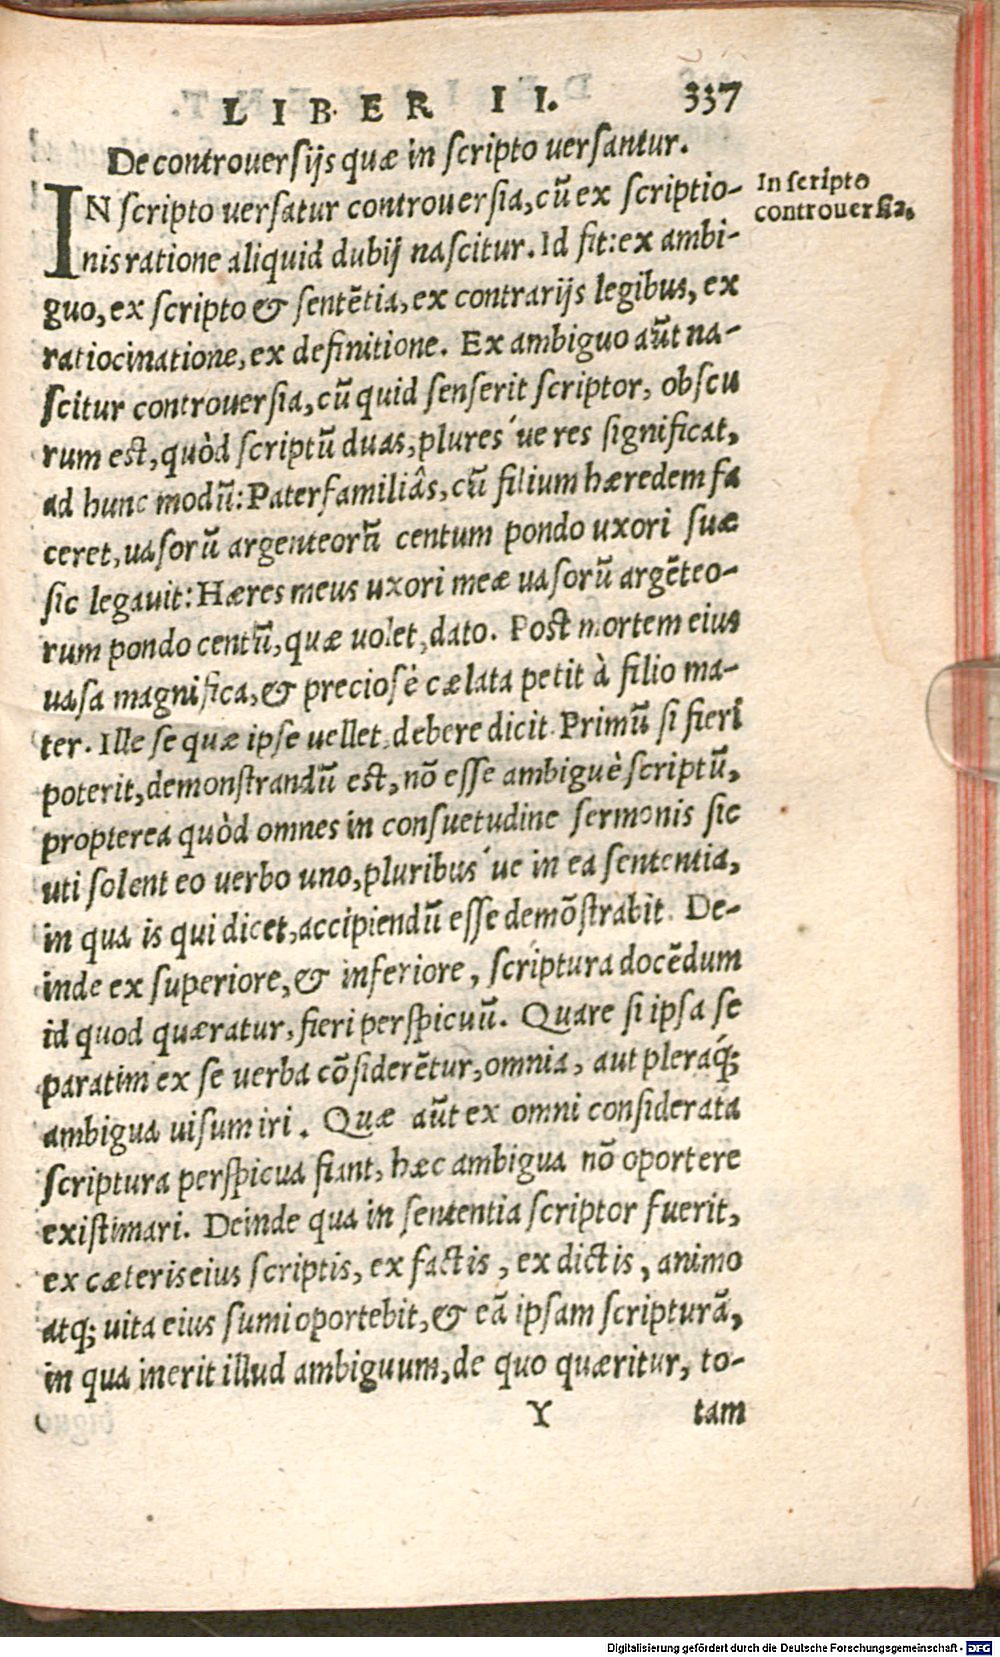 LIBER II. 337
De controuersijs quæ in scripto uersantur.
IN scripto uersatur controuersia, cū ex scriptio-
nis ratione aliquid dubij nascitur. Id fit: ex ambi-
guo, ex scripto & sentētia, ex contrarijs legibus, ex
ratiocinatione, ex definitione. Ex ambiguo aūt na-
scitur controuersia, cū quid senserit scriptor, obscu
rum est, quòd scriptū duas, plures´ue res significat,
ad hunc modū: Paterfamiliâs, cū filium hæredem fa
ceret, uasorū argenteorū centum pondo uxori suæ
sic legauit: Hæres meus uxori meæ uasorū argēteo-
rum pondo centū, quæ uolet, dato. Post mortem eius
uasa magnifica, & preciosè cælata petit à filio ma-
ter. Ille se quæ ipse uellet, debere dicit. Primū si fieri
poterit, demonstrandū est, nō esse ambiguè scriptū,
propterea quòd omnes in consuetudine sermonis sic
uti solent eo uerbo uno, pluribus´ue in ea sententia,
in qua is qui dicet, accipiendū esse demōstrabit. De-
inde ex superiore, & inferiore, scriptura docēdum
id quod quæratur, fieri perspicuū. Quare si ipsa se
paratim ex se uerba cōsiderētur, omnia, aut pleraq́;
ambigua uisum iri. Quæ aūt ex omni considerata
scriptura perspicua fiant, hæc ambigua nō oportere
existimari. Deinde qua in sententia scriptor fuerit,
ex cæteris eius scriptis, ex factis, ex dictis, animo
atq; uita eius sumi oportebit, & eā ipsam scripturā,
in qua inerit illud ambiguum, de quo quæritur, to-
Y tam
In scripto
controuersia.
Digitalisierung gefördert durch die Deutsche Forschungsgemeinschaft - DFG